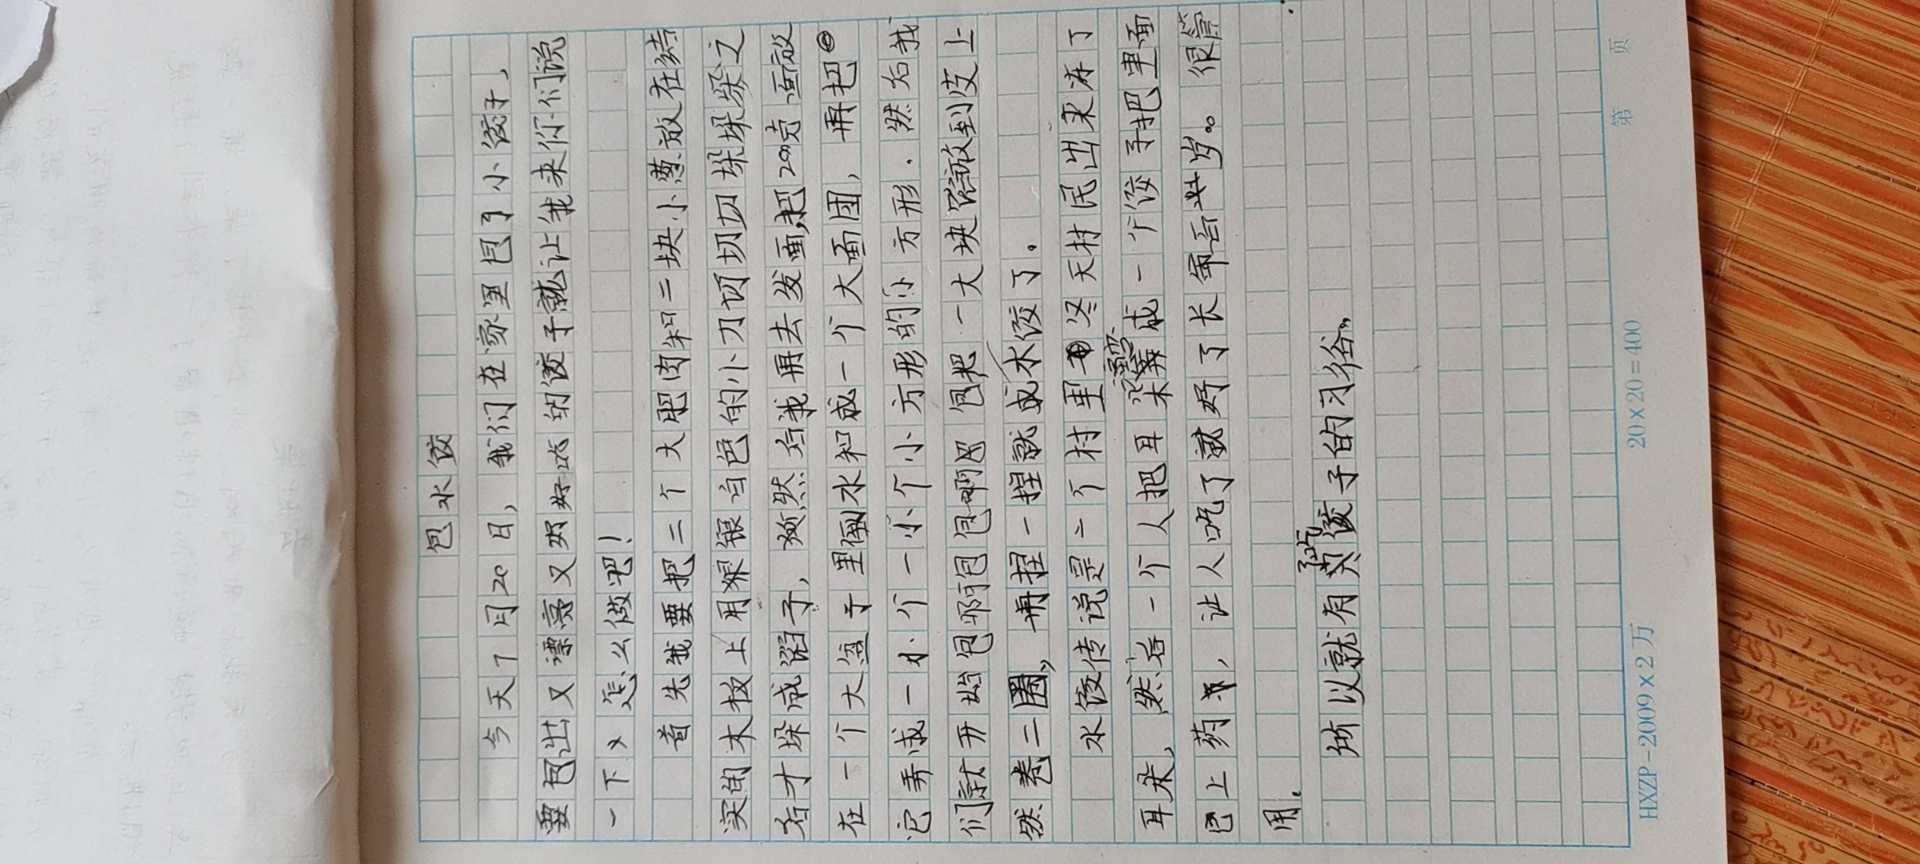 包水饺
今天7月20日，我们在家里包了小饺子，
要包出又漂亮又好吃的饺子就让我来你们说
一下怎么做吧！
首先我要把三个大肥肉和二块小葱放在结
实的木板上用银白色的小刀切切切切垛垛垛之
后才垛成馅子，然后我再去发面，把200克面放
在一个大盆子里倒水和成一个大面团，再把
它弄成一小个一小个小方形的小方形．然后我
们就开始包啊包啊包把一大块馅放到皮上
然卷二圈，再捏一捏就成水饺了．
水饺传说是一个村里冬天村民出来冻了
耳朵，然后一个人把耳朵弄成一个饺子把里面
包上药，让人吃了就好了长命百岁。很管
用．
所以就有吃饺子的习俗。
第 页
20×20=400
HXZP-2009×2万